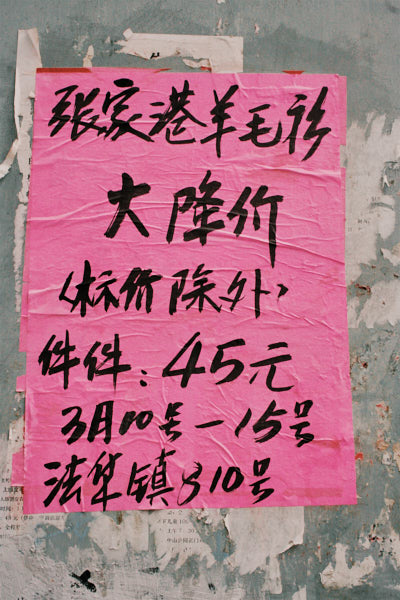 张家港羊毛衫
大降价
<标价除外>
件件:45元
3月10号—15号
法华镇810号